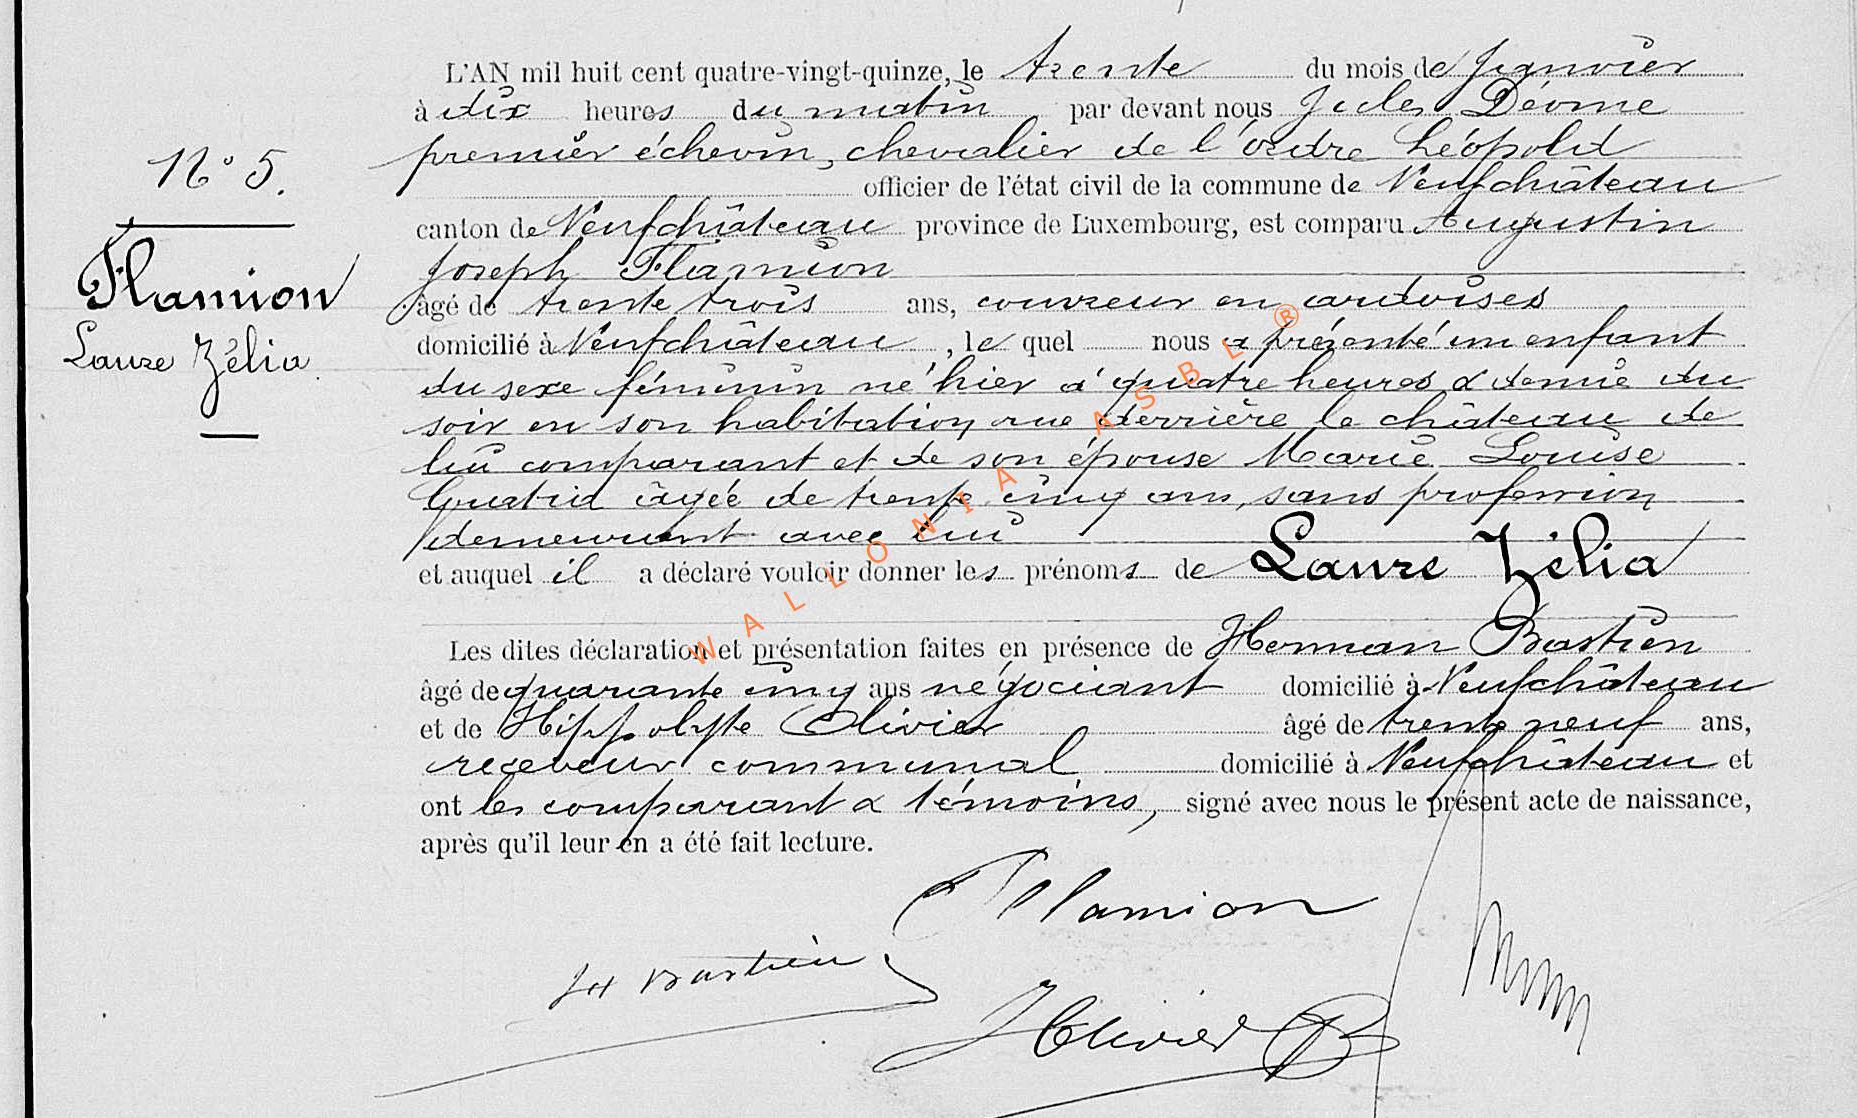 L'AN mil huit cent quatre-vingt-quinze, le trente du mois de Janvier
à dix heures du matin par devant nous Jules
premier échevin, chevalier de l'ordre Léopold
N° 5.
officier de l'état civil de la commune de Neufchâteau
canton de Neufchâteau province de Luxembourg, est comparu Augustin
Joseph Flamion
Flamion
âgé de trente trois ans, couvreur en ardoises
Laure Zélia
domicilié à Neufchâteau, le quel nous a présenté un enfant
du sexe féminin né hier à quatre heures & demie du
soir en son habitation rue derrière le château de
lui comparant et de son épouse Marie Louise
âgée de trente cinq ans, sans profession
demeurant avec lui
et auquel il a déclaré vouloir donner les prénoms de Laure Zélia
Les dites déclaration et présentation faites en présence de Herman Bastien
âgé de quarante cinq ans négociant domicilié à Neufchâteau
et de Hippolyte Olivier âgé de trente neuf ans,
receveur communal domicilié à Neufchâteau et
ont les comparant & témoins, signé avec nous le présent acte de naissance,
après qu'il leur en a été fait lecture.
Flamion
H Bastien
HOlivier
WALLONIA ASBL ®